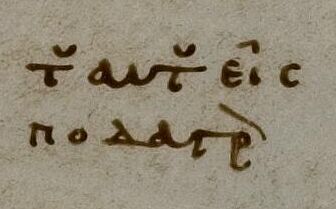 τ̆ αυτ̆ εἰς
ποδαγρ̀